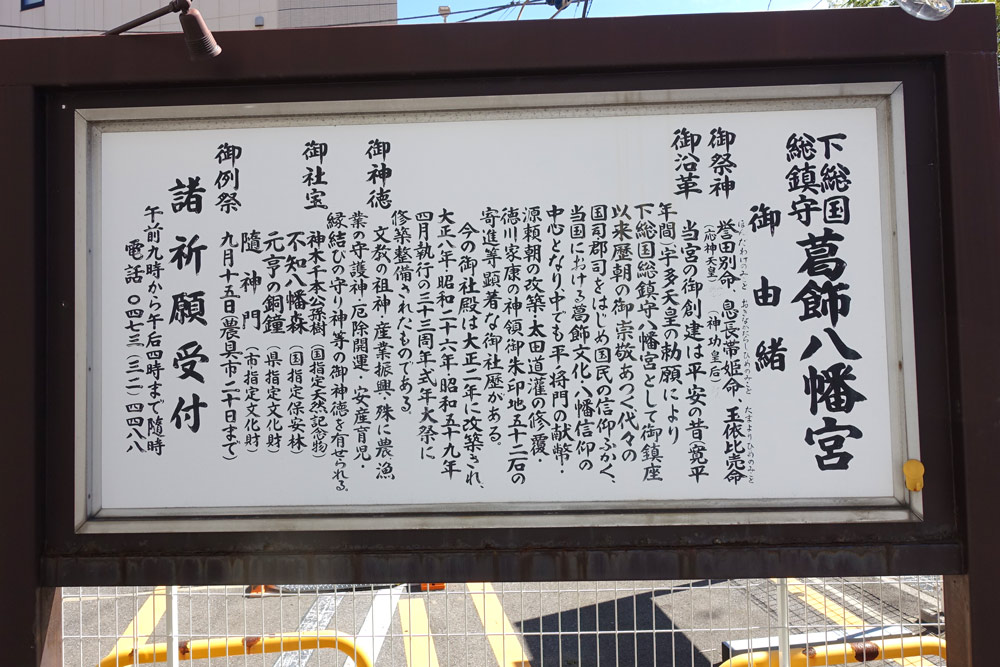 下総国
総鎮守
葛飾八幡宮
御由緒
御祭神
誉田別命、息長帯姫命、玉依比売命
ほんだわけのみこと
おきながたらしひめのみこと
たまよりひめのみこと
(応神天皇)
(神功皇后)
御沿革
当宮の御創建は平安の昔、寛平
年間)宇多天皇の勅願により
下総国総鎮守八幡宮として御鎮座
以来歴朝の御崇敬あつく代々の
国司郡司をはじめ国民の信仰ふかく、
当国における葛飾文化・八幡信仰の
中心となり中でも平・将門の献幣・
源頼朝の改築・太田道灌の修覆・
徳川家康の神領御朱印地五十二石の
寄進等顕著な御社歴がある。
今の御社殿は大正二年に改築され、
大正八年・昭和二十六年・昭和五十九年
四月執行の三十三周年式年大祭に
修築整備されたものである。
御神徳
文教の祖神・産業振興・殊に農漁
業の守護神・厄除開運・安産育児・
縁結びの守り神等の御神徳を有せられる。
御社宝
神木千本公孫樹(国指定天然記念物
不知八幡森(国指定保安林)
元亨の銅鐘(県指定文化財)
隨神門(市指定文化財)
御例祭
九月十五日(農具市二十日まで)
諸祈願受付
午前九時から午后四時まで随時
電話〇四七三(三二)四四八八